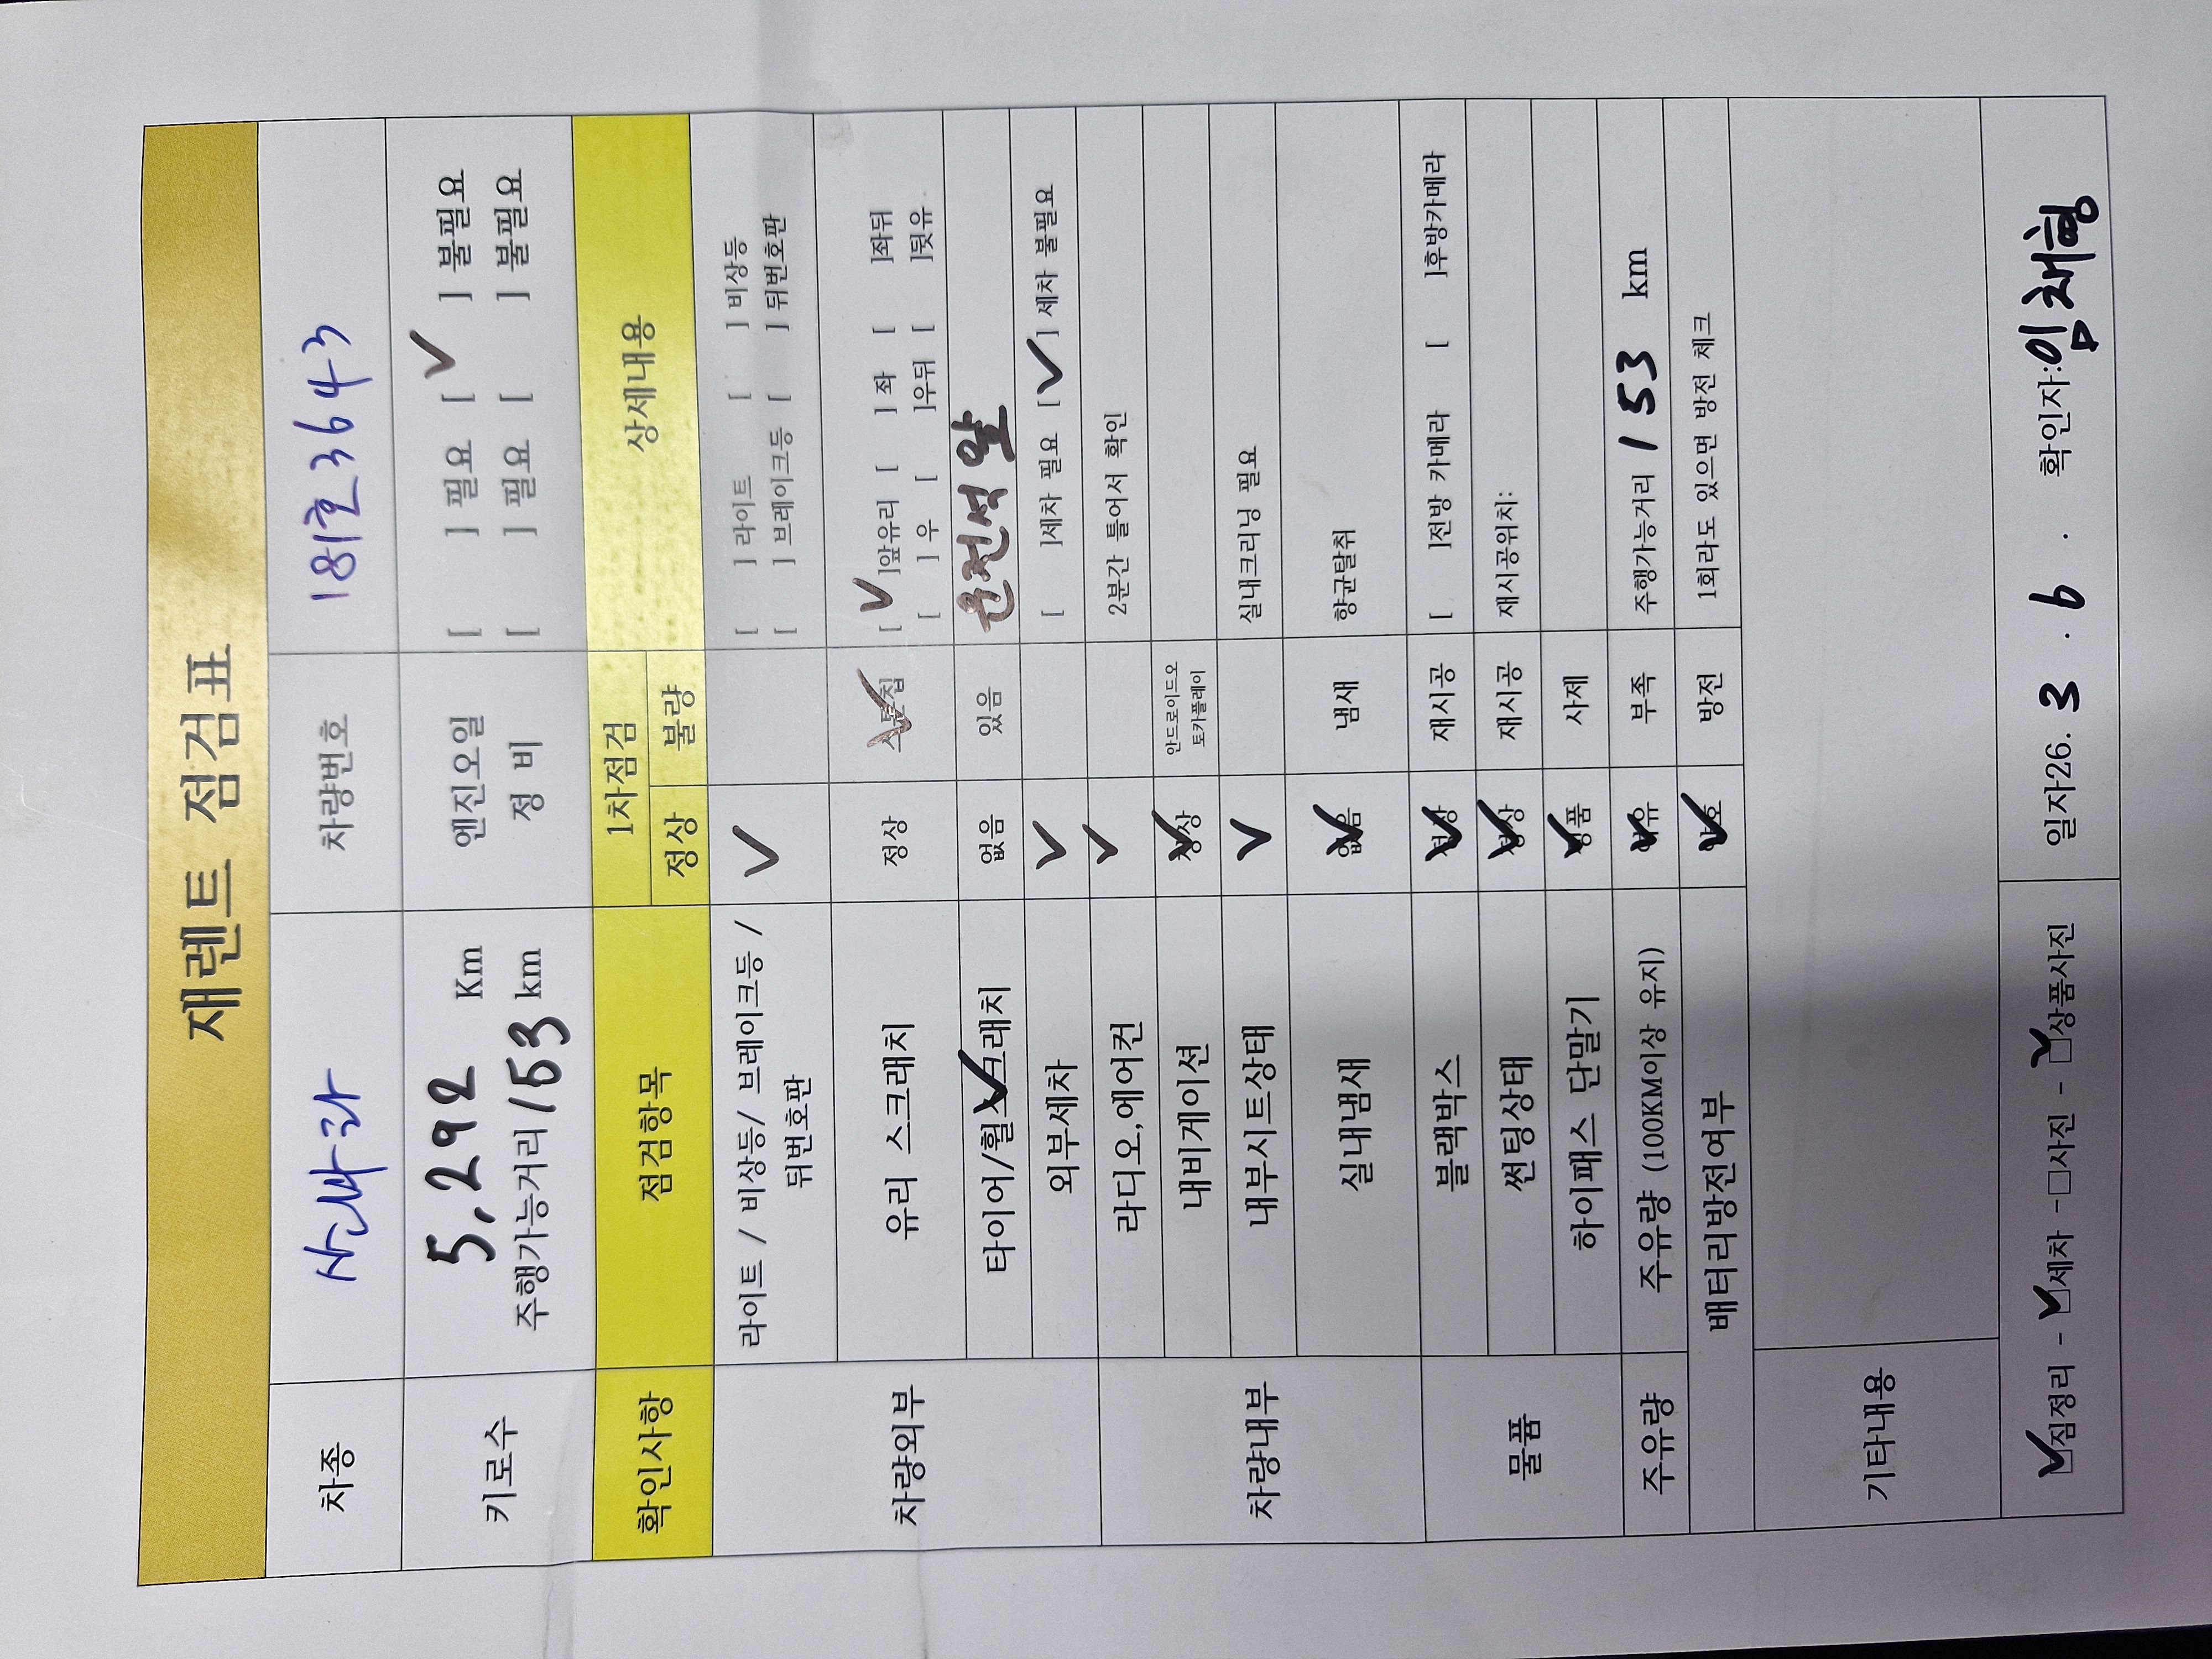 재렌트 점검표
차종 싼타라 차량번호 181호3643
키로수 5,292 Km 엔진오일 [ ] 필요 [ ✓ ] 불필요
주행가능거리 153 km 정 비 [ ] 필요 [ ] 불필요
확인사항 점검항목 1차점검 상세내용
정상 불량
차량외부 라이트 / 비상등/ 브레이크등 / ✓ [ ] 라이트 [ ] 비상등
뒤번호판 [ ] 브레이크등 [ ] 뒤번호판
유리 스크래치 정상 스톤칩 ✓ [ ✓ ]앞유리 [ ] 좌 [ ]좌뒤
[ ] 우 [ ]우뒤 [ ]뒷유
타이어/휠스크래치 ✓ 없음 있음 운전석 앞
외부세차 ✓ [ ]세차 필요 [ ✓ ] 세차 불필요
차량내부 라디오,에어컨 ✓ 2분간 틀어서 확인
내비게이션 정상 ✓ 안드로이드오
토카플레이
내부시트상태 ✓ 실내크리닝 필요
실내냄새 없음 ✓ 냄새 향균탈취
물품 블랙박스 정상 ✓ 재시공 [ ]전방 카메라 [ ]후방카메라
썬팅상태 정상 ✓ 재시공 재시공위치:
하이패스 단말기 정품 ✓ 사제
주유량 주유량 (100KM이상 유지) 여유 ✓ 부족 주행가능거리 153 km
배터리방전여부 양호 ✓ 방전 1회라도 있으면 방전 체크
기타내용
☑짐정리 - ☑세차 -□사진 - ☑상품사진 일자26. 3 . 6 . 확인자:임채형